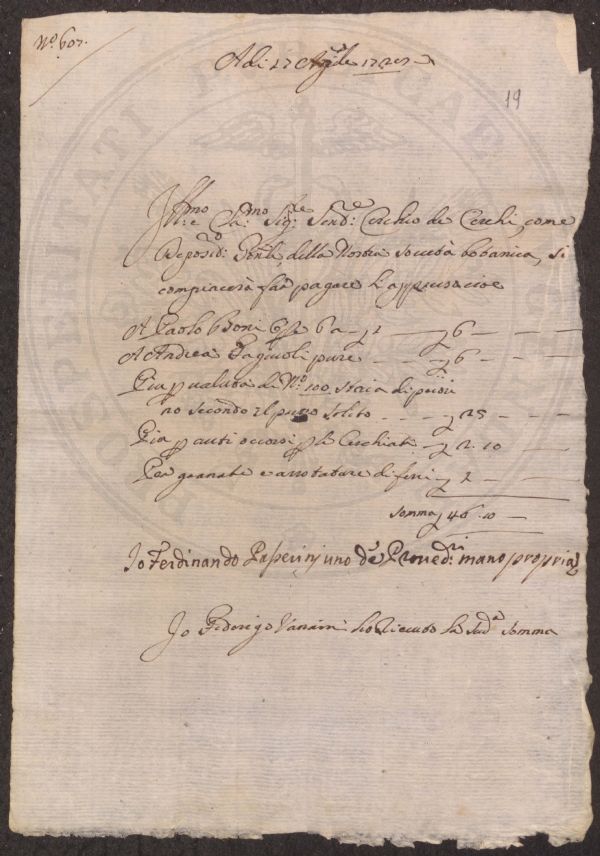 No. 607.
Adi 27 Aprile
19
Ill.mo e Cla.mo Sig.re Send.e Cerchio de Cerchi, come
Deposid.o Gen.le della Nostra Società botanica, si
compiacerà far pagare l'appresso cioè
A Paolo Boni 6 6
A Andrea Fagiuoli pure 6
Più p valuta di No. 100. staia di
no secondo il prezzo solito 25
Più p p le Cerchiati 2. 10
Per granate e arrotature di ferri 2
Somma 46. 10
Io Ferdinando Paperinj uno de Proved.ri mano propria
Io Federigo ho riceuto la Sud.a Somma